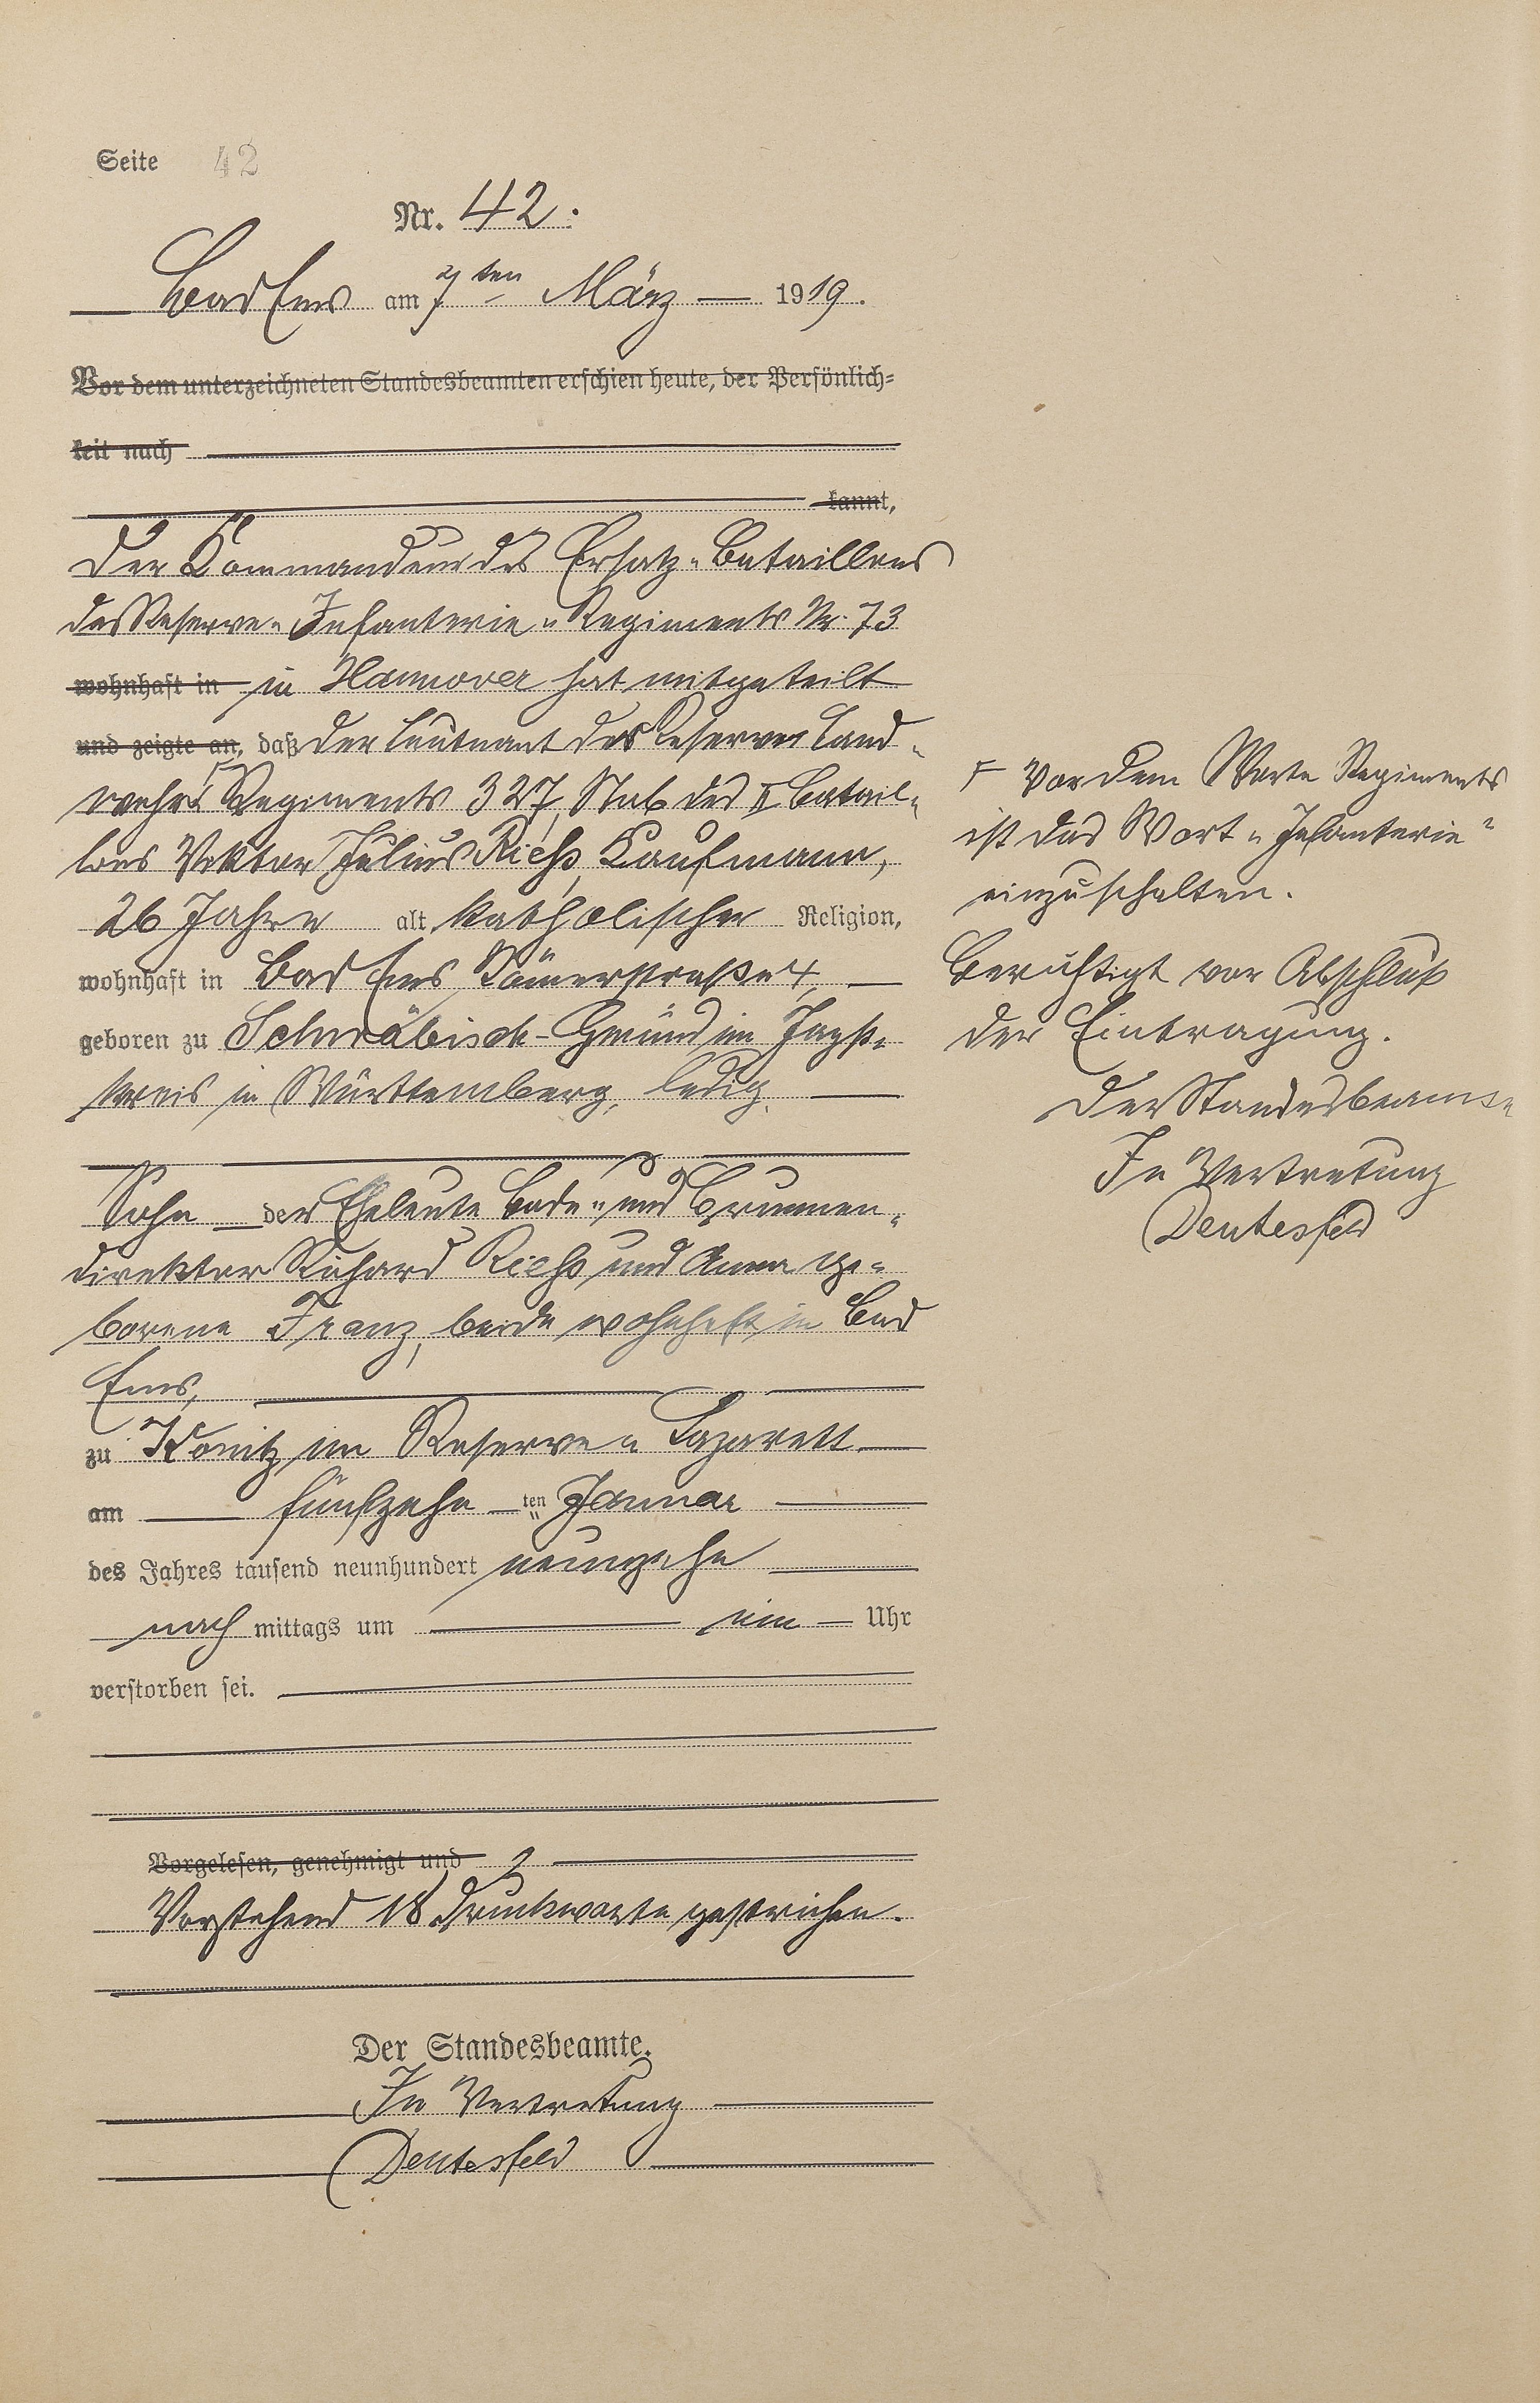 Seite 42
Nr. 42.
Bad Ems am 7ten März 1919.
Vor dem unterzeichneten Standesbeamten erschien heute, der Persönlich-
keit nach
kannt,
Der Kommandeur des Ersatz-Bataillons
des Reserve-Infanterie-Regiments Nr. 73
wohnhaft in in Hannover hat mitgeteilt
und zeigte an, daß der Leutnant der Reserve Land-
wehr Regiments 327, Stab des II Batail-
lons Viktor Julius Rieß, Kaufmann,
26 Jahre alt, katholischer Religion,
wohnhaft in Bad Ems, Römerstraße 4,
geboren zu Schwäbisch-Gmünd im Jagst-
kreis in Württemberg, ledig,
Sohn der Eheleute Bade- und Brunnen-
direktor Richard Rieß und Anna ge-
borene Franz, beide wohnhaft in Bad
Ems,
zu Konitz im Reserve-Lazarett
am fünfzehnten Januar
des Jahres tausend neunhundert neunzehn
nach mittags um ein Uhr
verstorben sei.
Vorgelesen, genehmigt und
Vorstehend 18 Druckworte gestrichen.
Der Standesbeamte.
In Vertretung
Deutesfeld
Vor dem Worte Regiments
ist das Wort "Infanterie"
einzuschalten.
Berichtigt vor Abschluß
der Eintragung.
Der Standesbeamte
In Vertretung
Deutesfeld